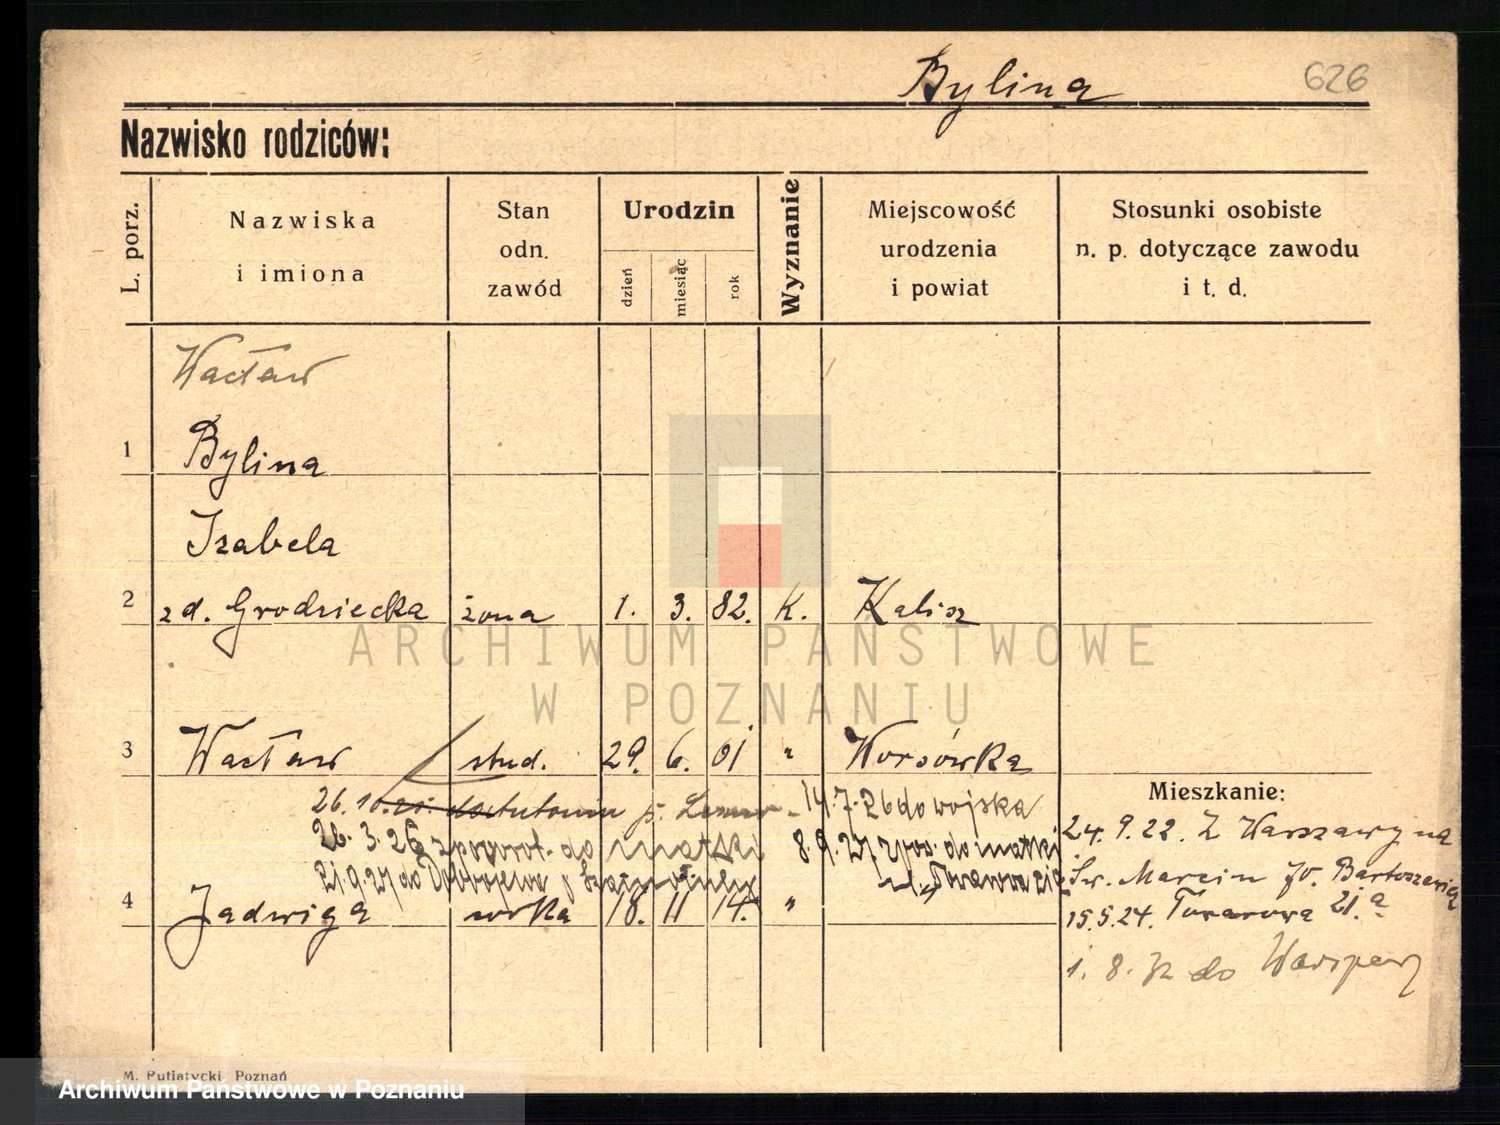 Bylina
626
Nazwisko rodziców:
L. porz.
Nazwiska
i imiona
Stan
odn.
zawód
Urodzin
dzień
miesiąc
rok
Wyznanie
Miejscowość
urodzenia
i powiat
Stosunki osobiste
n. p. dotyczące zawodu
i t. d.
Wacław
1 Bylina
Izabela
2 zd. Grodziecka żona 1. 3. 82. K. Kalisz
ARCHIWUM PAŃSTWOWE
W POZNANIU
3 Wacław stud. 29. 6. 01 "
Mieszkanie:
26. 10. 25. 14.7.26 do wojska
26. 3. 26 do matki 8.9.27 do matki
21.9.27 do
4 Jadwiga córka 18. 11 14. "
24. 9. 22. Z Warszawy na
Św. Marcin
15.5.24. Towarowa 21.a
1. 8. 32 do Warszawy
M. Putiatycki, Poznań
Archiwum Państwowe w Poznaniu